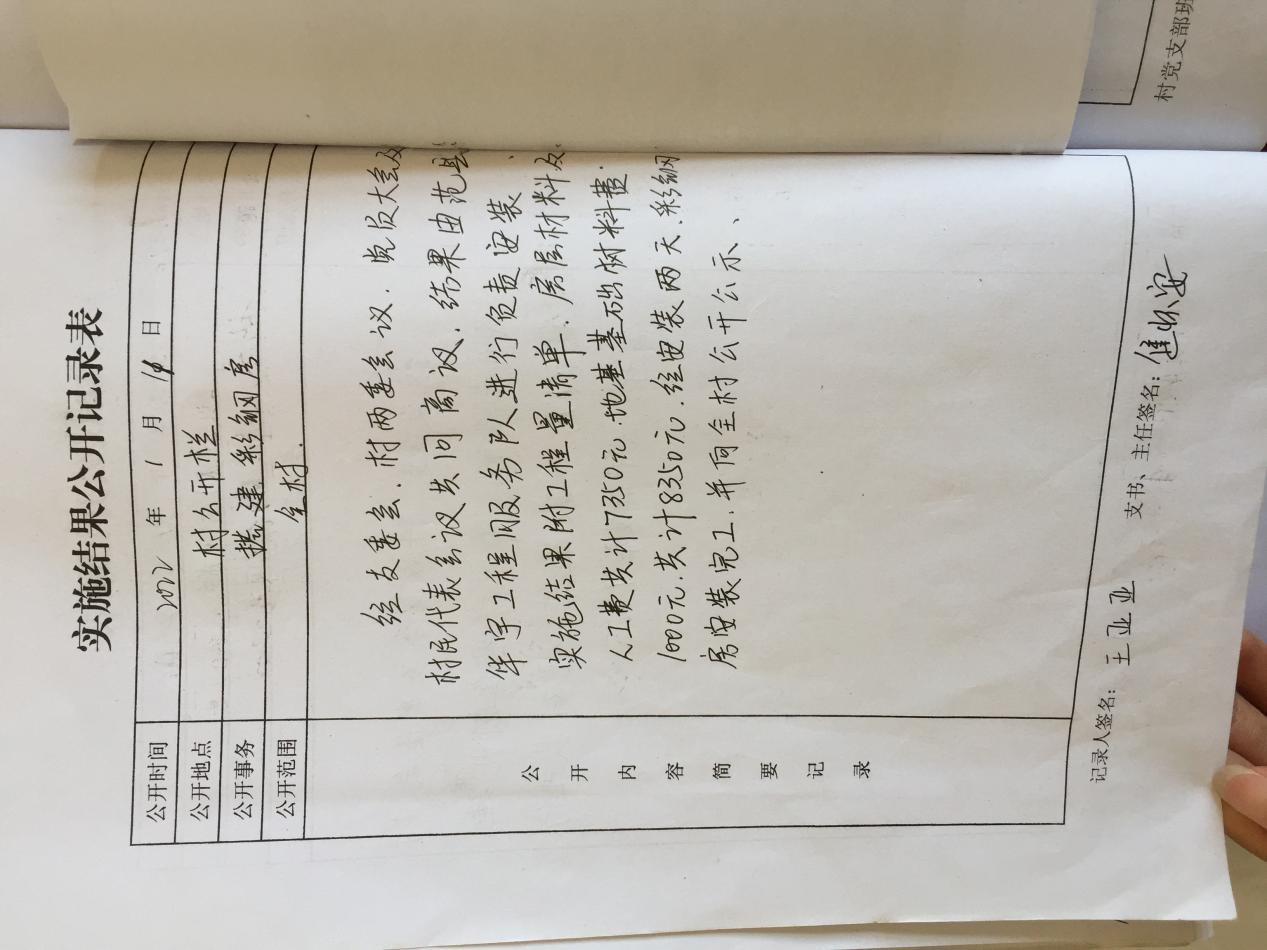 实施结果公开记录表
公开时间 2022 年 1 月 日
公开地点 村公开栏
公开事务 搭建彩钢房
公开范围 全村.
公开内容简要记录
经支委会、村两委会议、党员大会及
村民代表会议共同商议,结果由范县
华宇工程服务队进行负责安装、
实施结果附工程量清单.房屋材料及
人工费共计7350元.地基基础材料费.
1000元.共计8350元.经安装两天.彩钢
房安装完工.并向全村公开公示、
记录人签名: 王亚亚 支书、主任签名: 焦怀安
村党支部班